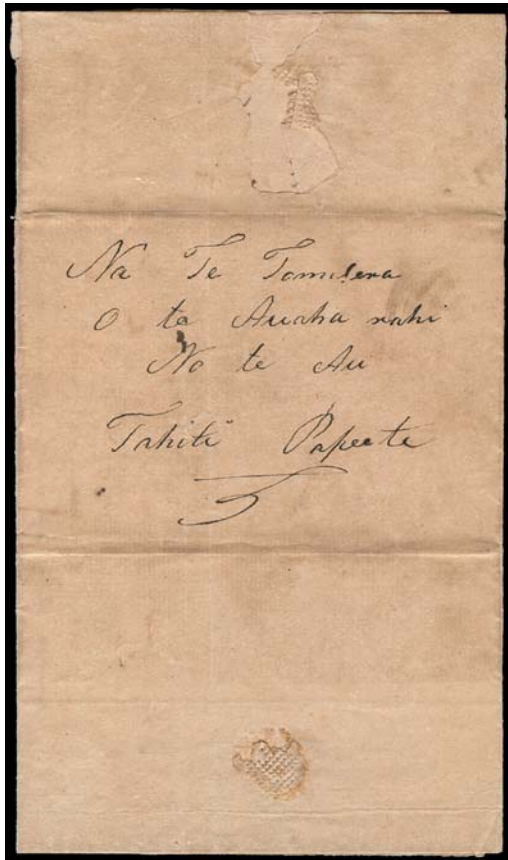 Na Te Tomitera
O te Auaha rahi
No te Au
Tahiti Papeete